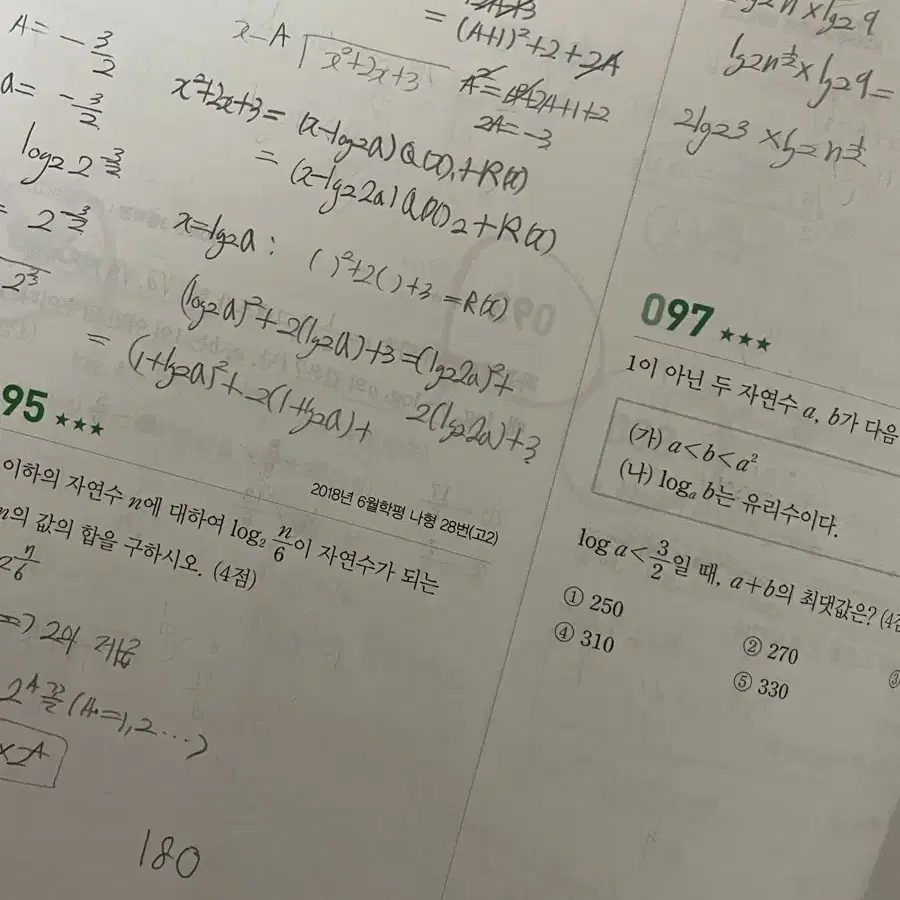 A = -3/2
a = -3/2
log2 2^-3/2
2^-3/2
x-A
x²+2x+3
=
(A+1)²+2+2A
2A=-3
x²+2x+3 = (x-log2a)Q(x)1+R(x)
= (x-log22a)Q(x)2+R(x)
x=log2a : ( )²+2( )+3=R(x)
(log2a)²+2(log2a)+3=(log22a)²+
2(log22a)+3
= (1+log2a)²+2(1+log2a)+
95 ★★★
2018년 6월학평 나형 28번(고2)
이하의 자연수 n에 대하여 log₂ n/6이 자연수가 되는
n의 값의 합을 구하시오. (4점)
n/6
=> 2의 제곱
2^A 꼴 (A=1,2...)
×2^A
180
log29
lg2n^1/2×lg29=
2lg23×lg2n^1/2
097 ★★★
1이 아닌 두 자연수 a, b가 다음
(가) a<b<a²
(나) logₐ b는 유리수이다.
log a<3/2일 때, a+b의 최댓값은? (4점
① 250
② 270
③
④ 310
⑤ 330